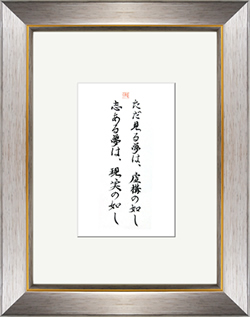 ただ見る夢は、虚構の如し
志ある夢は、現実の如し